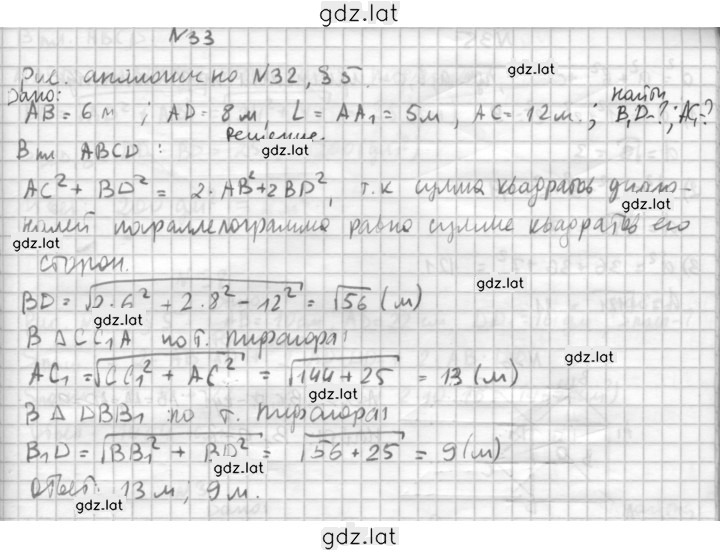 gdz.lat
N33
Рис. аналогично N32, §5.
gdz.lat
Дано: найти
AB = 6 м ; AD = 8 м, L = AA₁ = 5м, AC = 12 м. ; B₁D-?; AC₁-?
Решение.
В пл ABCD :
gdz.lat
AC² + BD² = 2·AB²+2BD², т.к сумма квадратов диаго-
gdz.lat
налей параллелограмма равна сумме квадратов его
gdz.lat
сторон.
gdz.lat
BD = √2·6² + 2·8² - 12² = √56 (м)
gdz.lat
В Δ CC₁A по т. Пифагора:
gdz.lat
AC₁ = √CC₁² + AC² = √144+25 = 13 (м)
gdz.lat
В Δ DBB₁ по т. Пифагора:
B₁D = √BB₁² + BD² = √56+25 = 9 (м)
gdz.lat
Ответ: 13 м; 9 м.
gdz.lat
gdz.lat